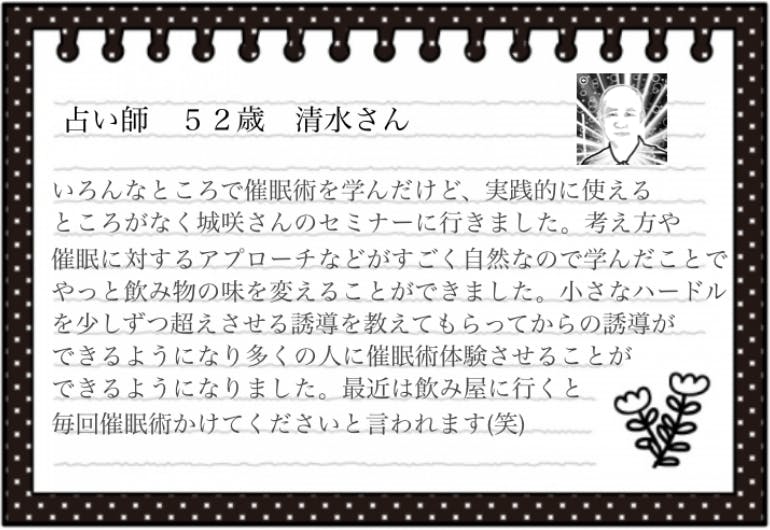 占い師　５２歳　清水さん
いろんなところで催眠術を学んだけど、実践的に使える
ところがなく城咲さんのセミナーに行きました。考え方や
催眠に対するアプローチなどがすごく自然なので学んだことで
やっと飲み物の味を変えることができました。小さなハードル
を少しずつ超えさせる誘導を教えてもらってからの誘導が
できるようになり多くの人に催眠術体験させることが
できるようになりました。最近は飲み屋に行くと
毎回催眠術かけてくださいと言われます(笑)